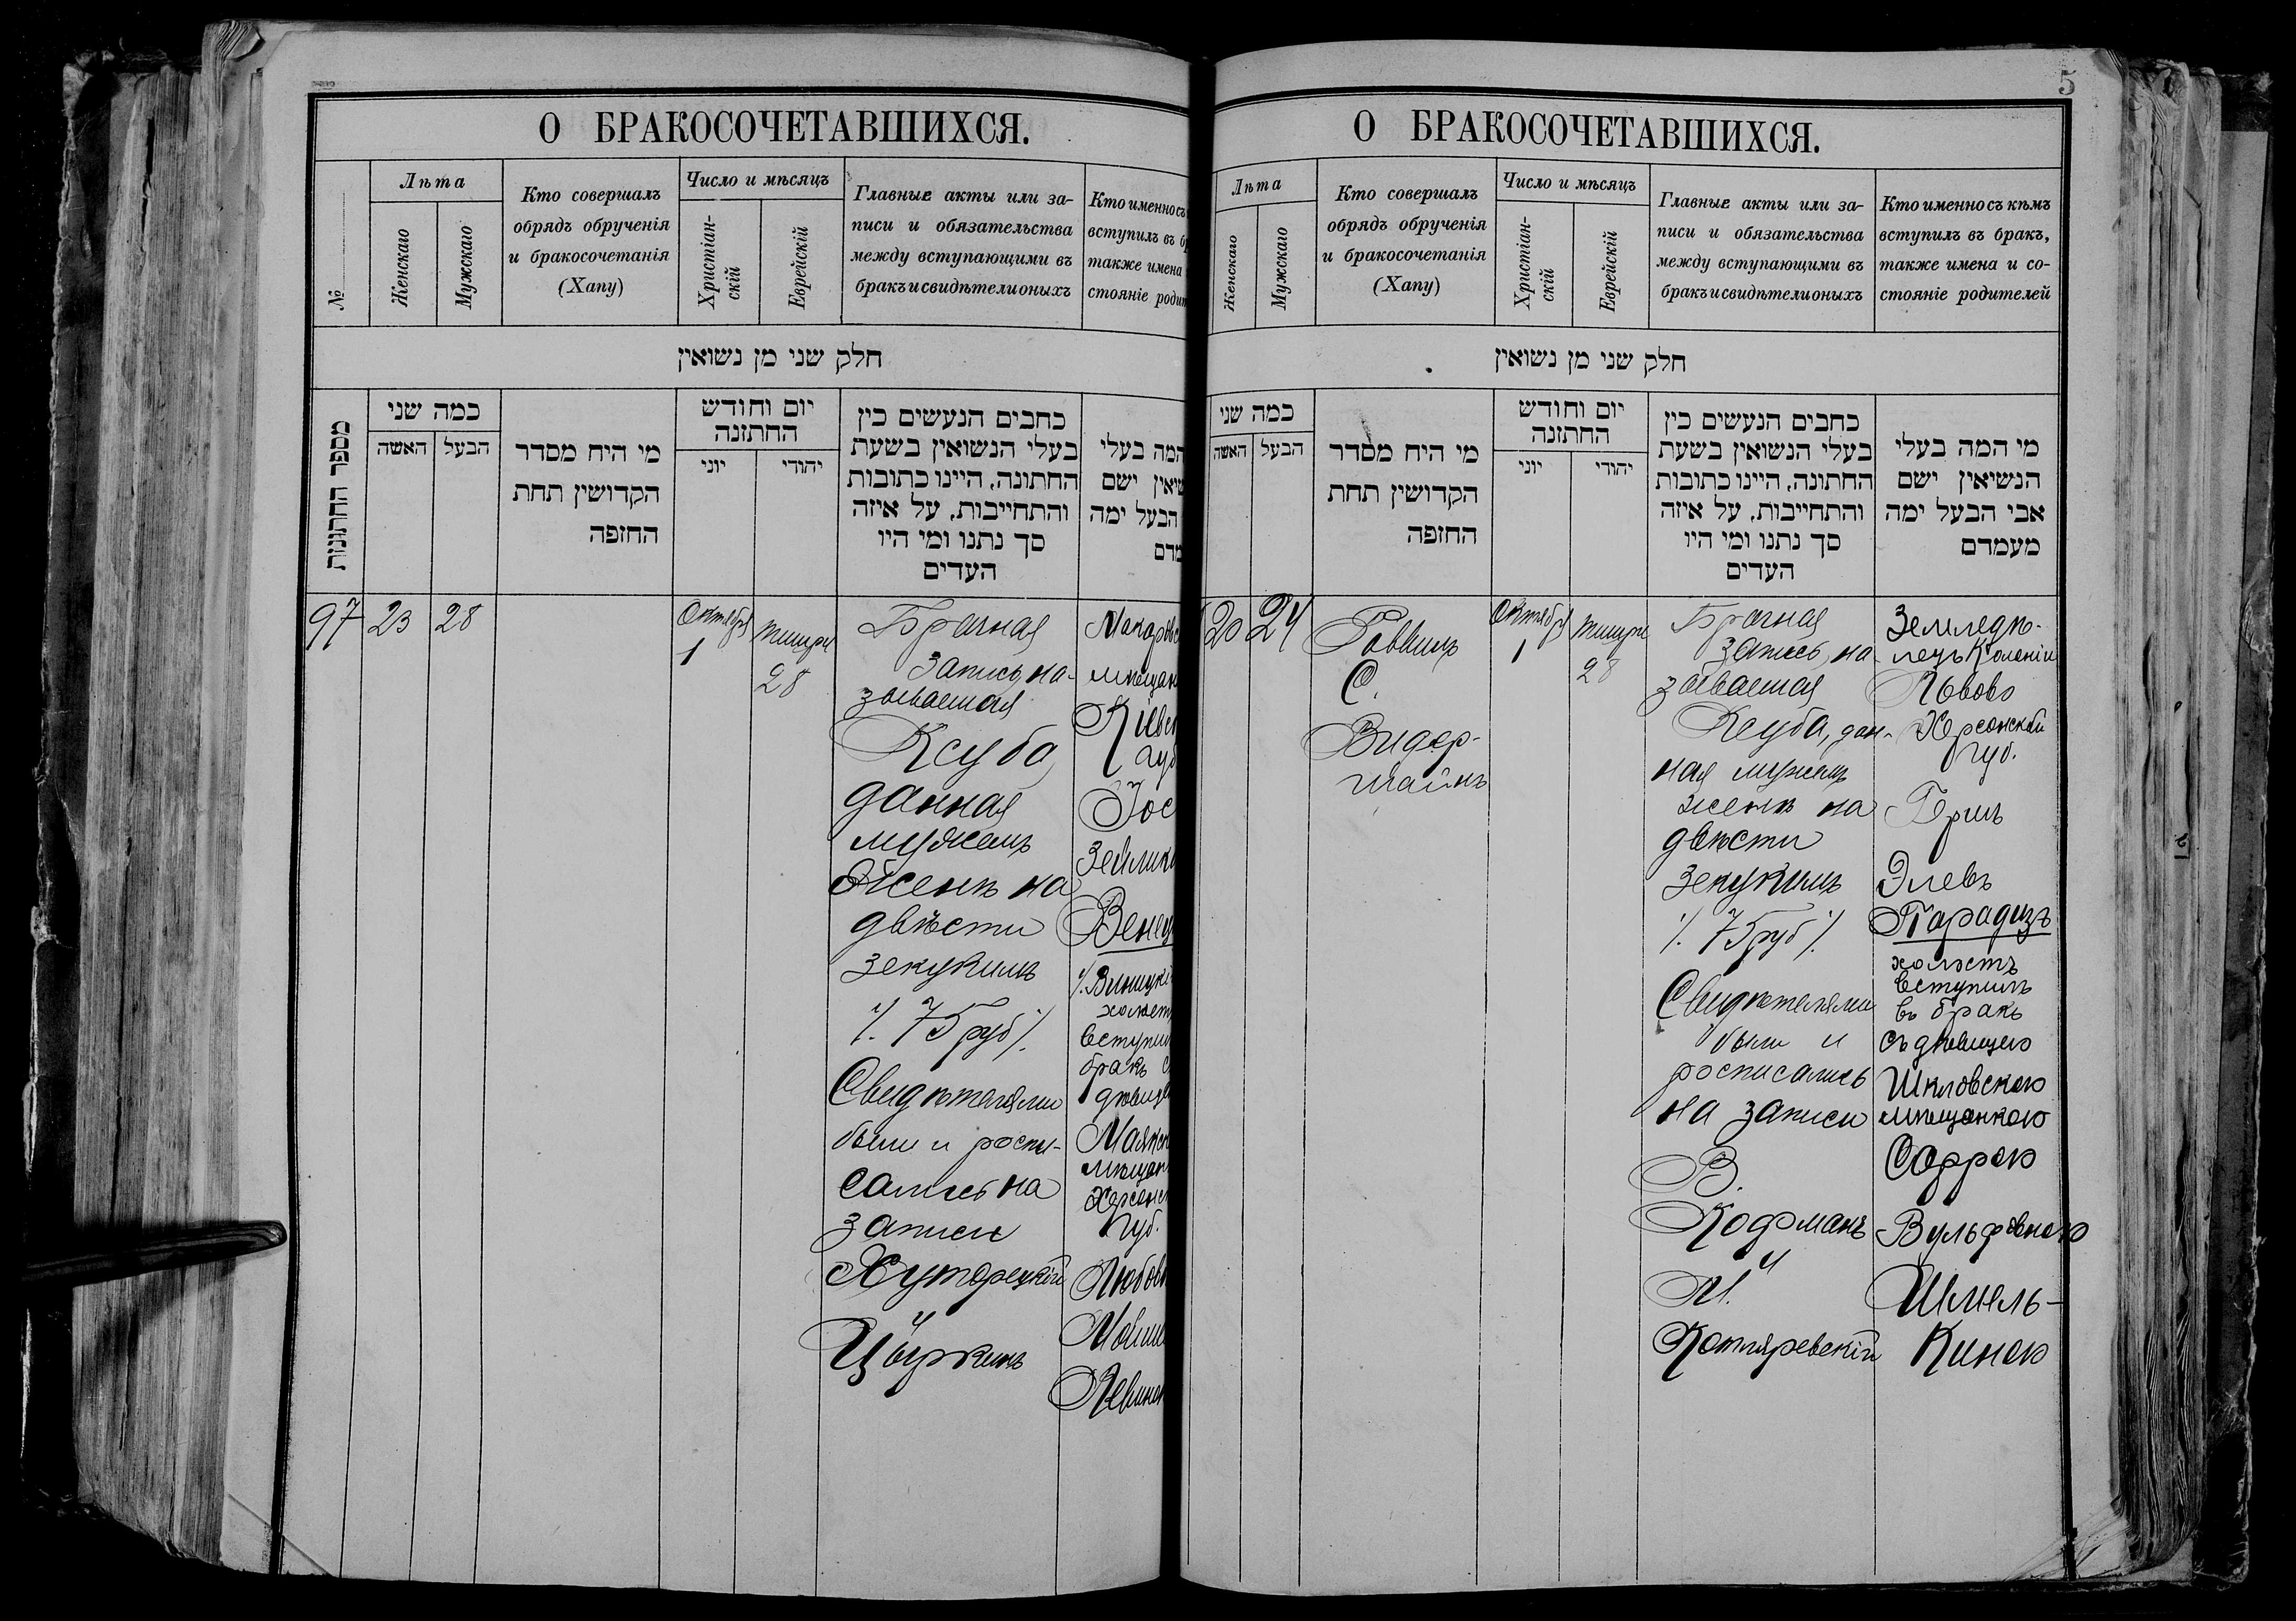 О БРАКОСОЧЕТАВШИХСЯ.
№
Лѣта
Женскаго
Мужскаго
Кто совершалъ
обрядъ обрученія
и бракосочетанія
(Хапу)
Число и мѣсяцъ
Христіан-
скій
Еврейскій
Главные акты или за-
писи и обязательства
между вступающими въ
бракъ и свидѣтели оныхъ
Кто именно съ
вступилъ въ б
также имена
стояніе роди
חלק שני מן נשואין
מספר החתונות
כמה שני
האשה
הבעל
מי היח מסדר
הקדושין תחת
החופה
יום וחודש
החתונה
יוני
יהודי
כחבים הנעשים כין
בעלי הנשואין בשעת
החתונה, היינו כתובות
והתחייבות, על איזה
סך נתנו ומי היו
העדים
המה בעלי
שיאין ישם
הבעל ימה
מדם
97
23
28
Октября
1
Тишри
28
Брачная
запись, на-
зываемая
Ксуба,
данная
мужемъ
Женѣ на
двѣсти
зекукимъ
/. 75 руб /.
Свидѣтелями
были и роспи-
сались на
записи
Хуторецкій
и
Цыркинъ
Макаровс
мѣщан
Кіевс
губ
Іос
Зейлик
Венец
/. Виницкі
холост
вступи
бракъ с
дѣвице
Маякс
мѣщан
Херсонс
Губ.
Любов
Мовши
Левинсо
5
О БРАКОСОЧЕТАВШИХСЯ.
Лѣта
Женскаго
Мужскаго
Кто совершалъ
обрядъ обрученія
и бракосочетанія
(Хапу)
Число и мѣсяцъ
Христіан-
скій
Еврейскій
Главные акты или за-
писи и обязательства
между вступающими въ
бракъ и свидѣтели оныхъ
Кто именно съ кѣмъ
вступилъ въ бракъ,
также имена и со-
стояніе родителей
חלק שני מן נשואין
כמה שני
האשה
הבעל
מי היח מסדר
הקדושין תחת
החופה
יום וחודש
החתונה
יוני
יהודי
כחבים הנעשים כין
בעלי הנשואין בשעת
החתונה, היינו כתובות
והתחייבות, על איזה
סך נתנו ומי היו
העדים
מי המה בעלי
הנשיאין ישם
אבי הבעל ימה
מעמדם
20
24
Раввинъ
С.
Видер-
шайнъ
Октября
1
Тишри
28
Брачная
запись, на-
зываемая
Ксуба, дан-
ная мужемъ
женѣ на
двѣсти
зекукимъ
/. 75 руб /.
Свидѣтелями
были и
росписались
на записи
В.
Кофманъ
и
М.
Котляревскій
Земледѣ-
лецъ Колоніи
Львово
Херсонской
Губ.
Гершъ
Элевъ
Парадизъ
холостъ
вступилъ
въ бракъ
съ дѣвицею
Шкловскою
мѣщанкою
Соррою
Вульфовною
Шмель-
Киною